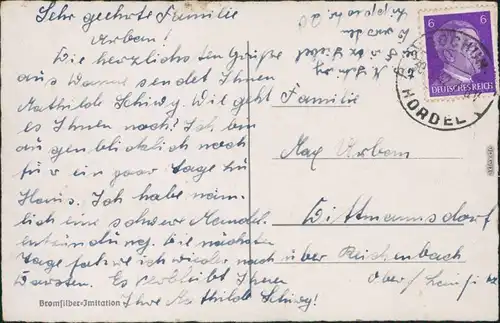 Sehr geehrte Familie
Urban!
Die herzlichsten Grüße
aus Wanne sendet Ihnen
Mathilde Schiwy. Wie geht
es Ihnen noch? Ich bin
augenblicklich noch
für ein paar Tage zu
Haus. Ich habe näm-
lich eine schwere Mandel
entzündung. Die nächsten
Tage fahre ich wieder nach
Es verbleibt Ihnen
Ihre Mathilde Schiwy!
Bromsilber-Imitation
6
6
DEUTSCHES REICH
BOCHUM
HORDEL
Familie
Max Urban
Dittmannsdorf
über Reichenbach